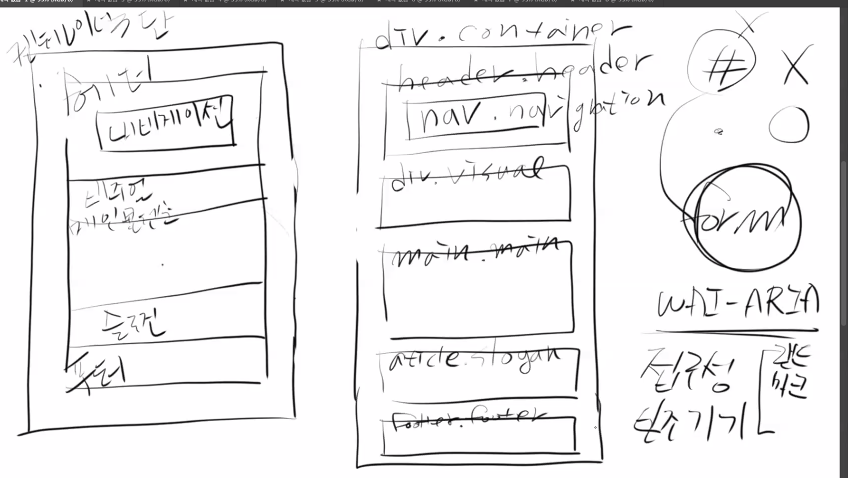 컨테이너
헤더
네비게이션
비주얼
메인콘텐츠
슬로건
푸터
div.container
header.header
nav.navigration
div.visual
main.main
aticle.slogan
footer.footer
#
X
form
WAI-ARIA
접근성
보조기기
랜드
마크